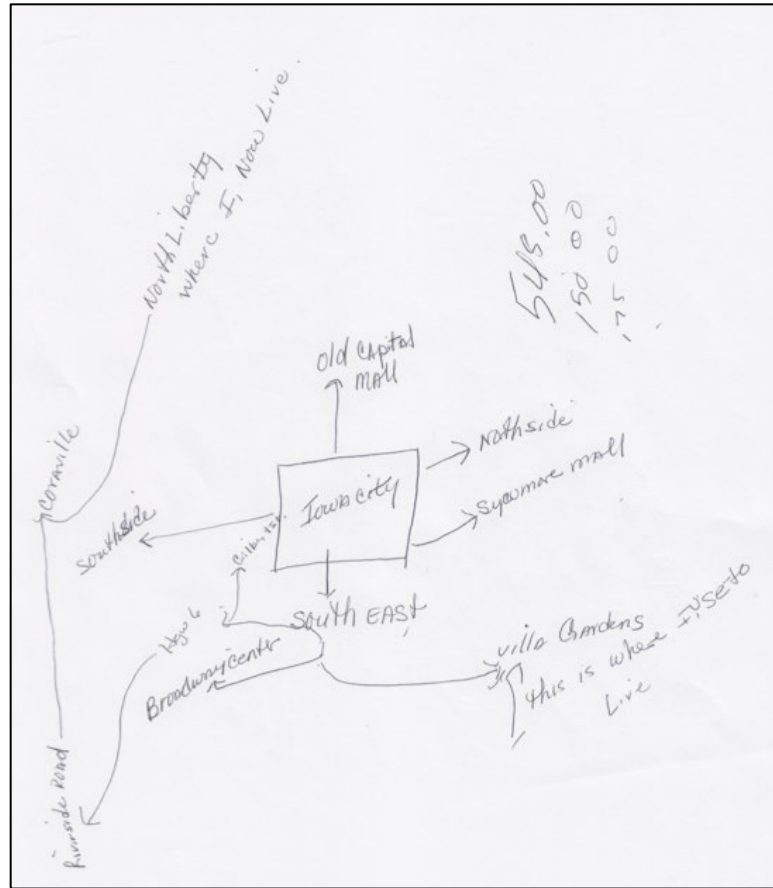 North Liberty
where I, Now Live.
548.00
150 00
175 00
Old Capital
MAll
Nothside
Sycomore mAll
Iowa city
Coraville
Southside
South EAST
Hgw 6
Broadway center
Villa Gardens
this is where I, use to
Live
Riverside Road